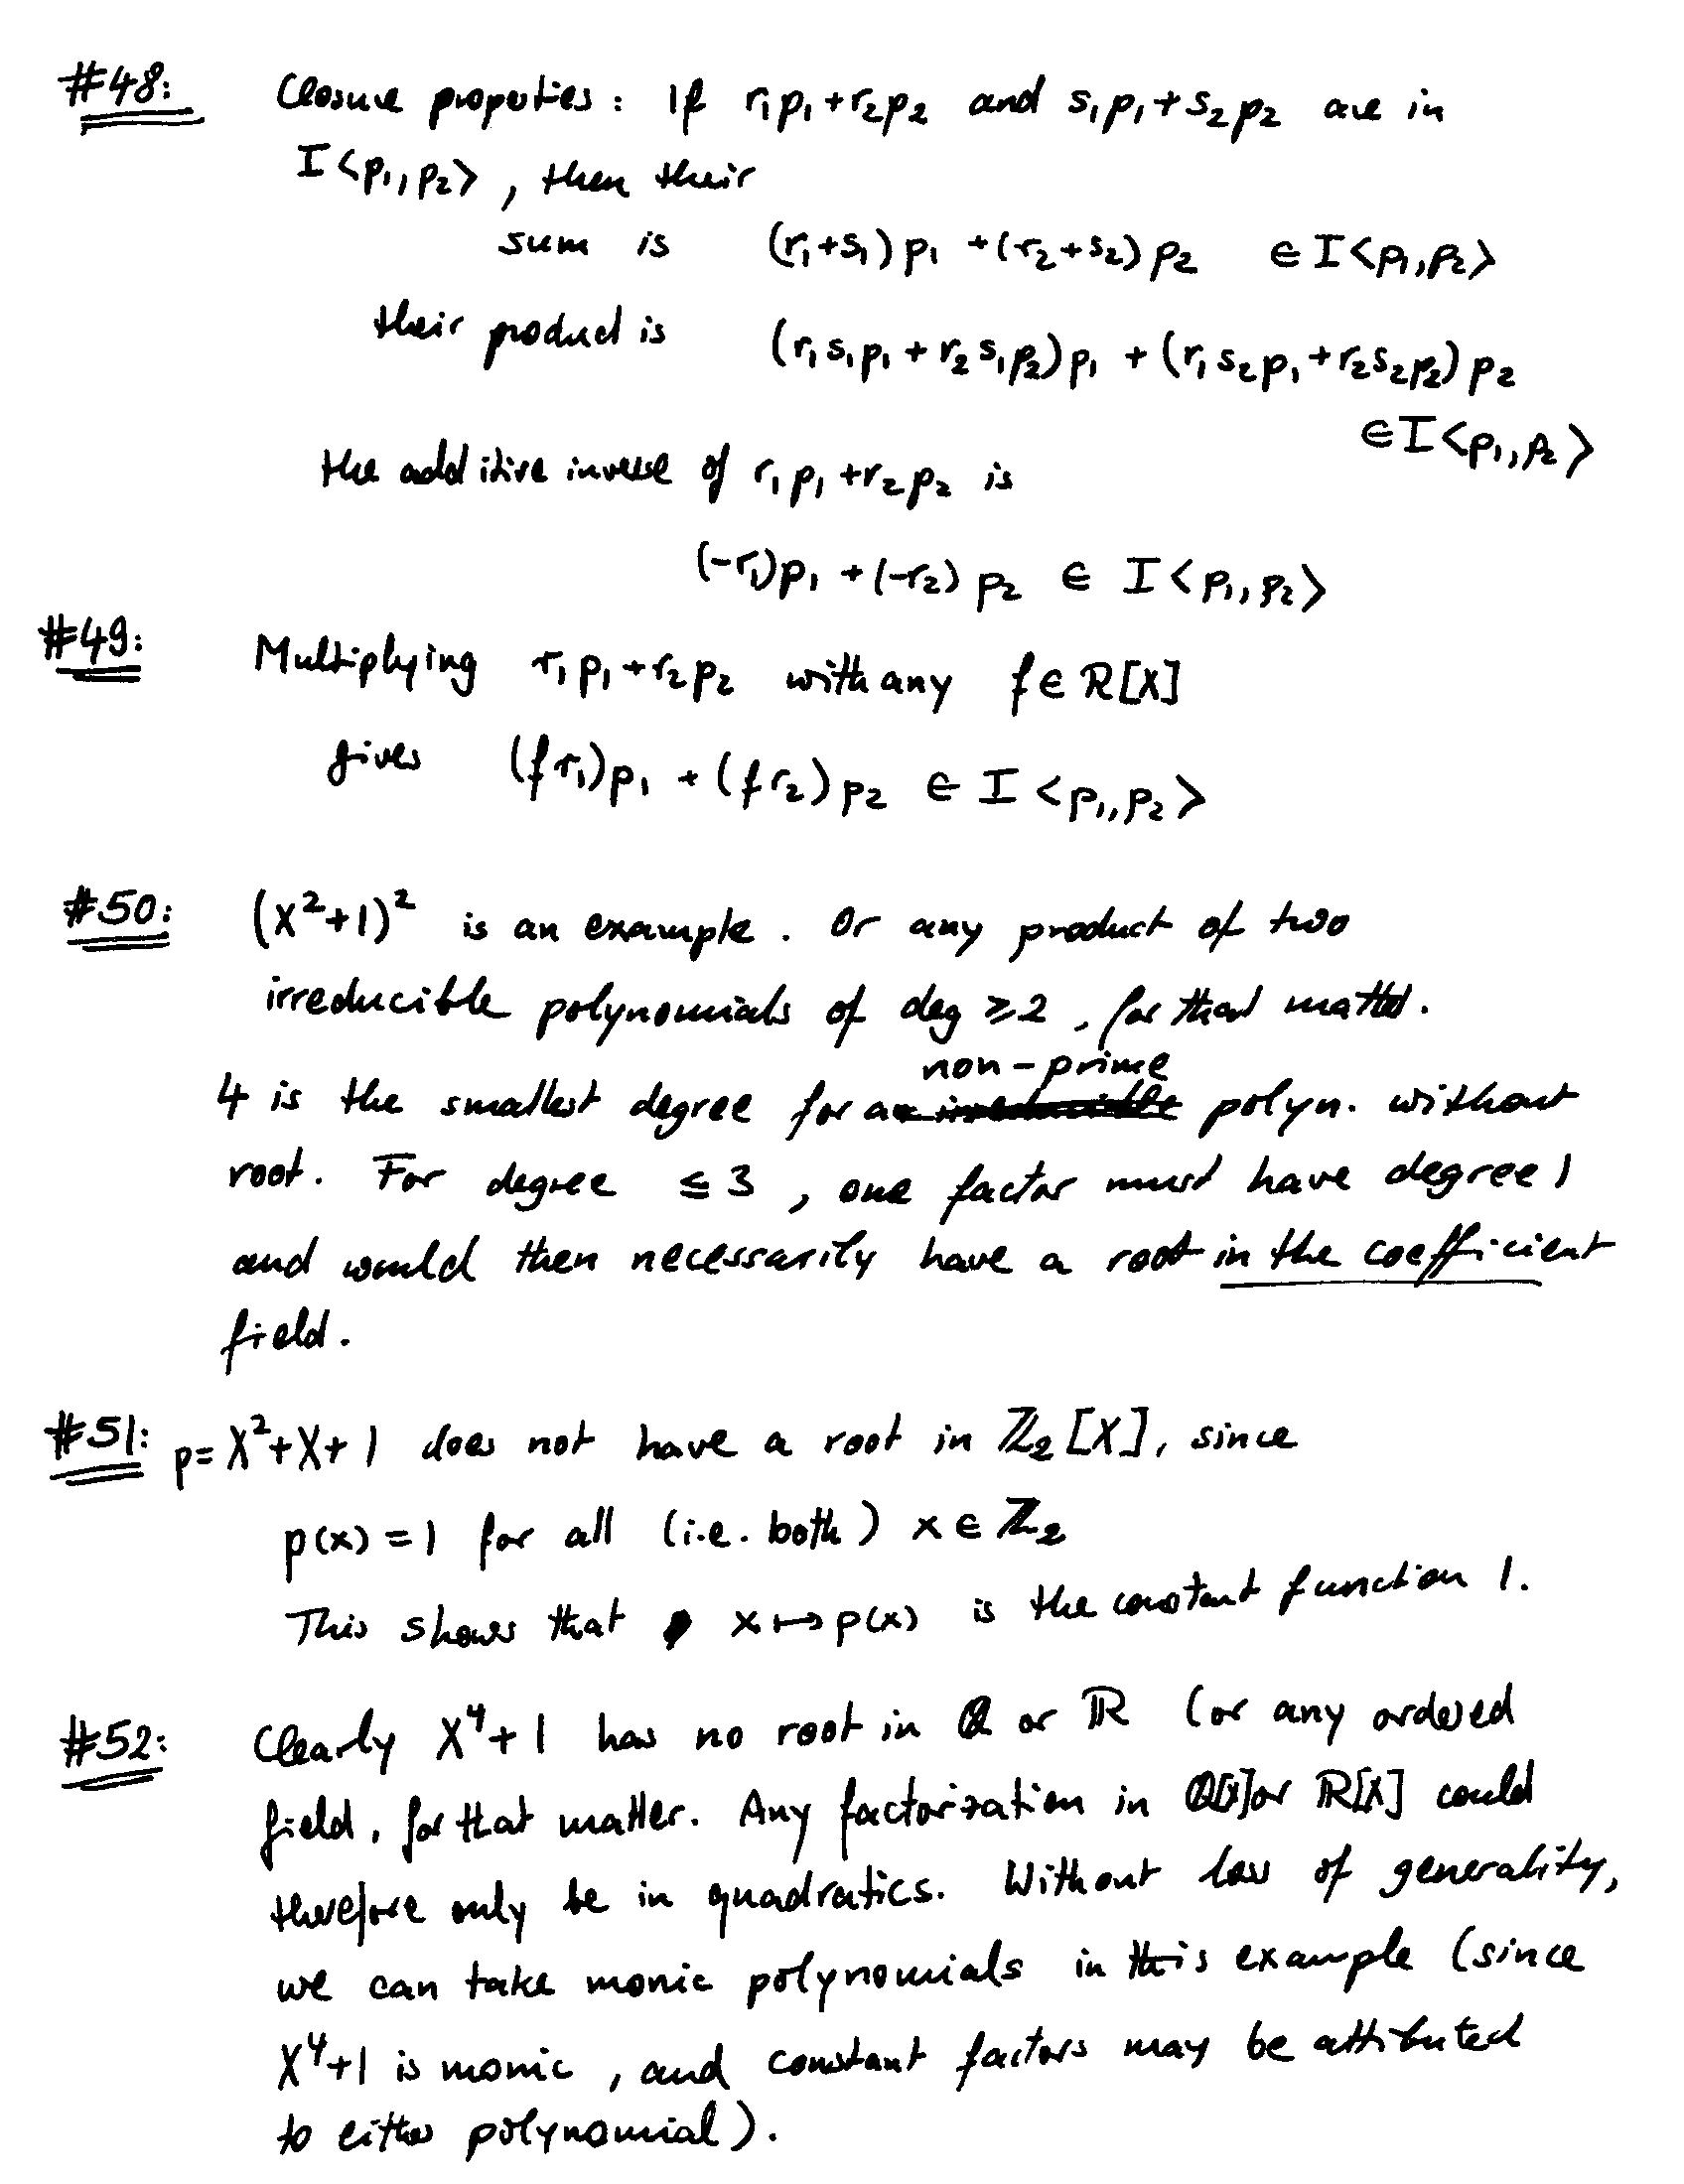 #48: Closure properties: If r₁p₁+r₂p₂ and s₁p₁+s₂p₂ are in
I<p₁,p₂>, then their
sum is (r₁+s₁)p₁ +(r₂+s₂)p₂ ∈ I<p₁,p₂>
their product is (r₁s₁p₁ + r₂s₁p₂)p₁ + (r₁s₂p₁+r₂s₂p₂)p₂
∈ I<p₁,p₂>
the additive inverse of r₁p₁+r₂p₂ is
(-r₁)p₁ +(-r₂)p₂ ∈ I<p₁,p₂>
#49: Multiplying r₁p₁+r₂p₂ with any f∈R[X]
gives (fr₁)p₁ + (fr₂)p₂ ∈ I<p₁,p₂>
#50: (X²+1)² is an example. Or any product of two
irreducible polynomials of deg ≥2, for that matter.
non-prime
4 is the smallest degree for a polyn. without
root. For degree ≤ 3, one factor must have degree 1
and would then necessarily have a root in the coefficient
field.
#51: p=X²+X+1 does not have a root in ℤ₂[X], since
p(x)=1 for all (i.e. both) x∈ℤ₂
This shows that x↦p(x) is the constant function 1.
#52: Clearly X⁴+1 has no root in ℚ or ℝ (or any ordered
field, for that matter. Any factorization in ℚ[X] or ℝ[X] could
therefore only be in quadratics. Without loss of generality,
we can take monic polynomials in this example (since
X⁴+1 is monic, and constant factors may be attributed
to either polynomial).